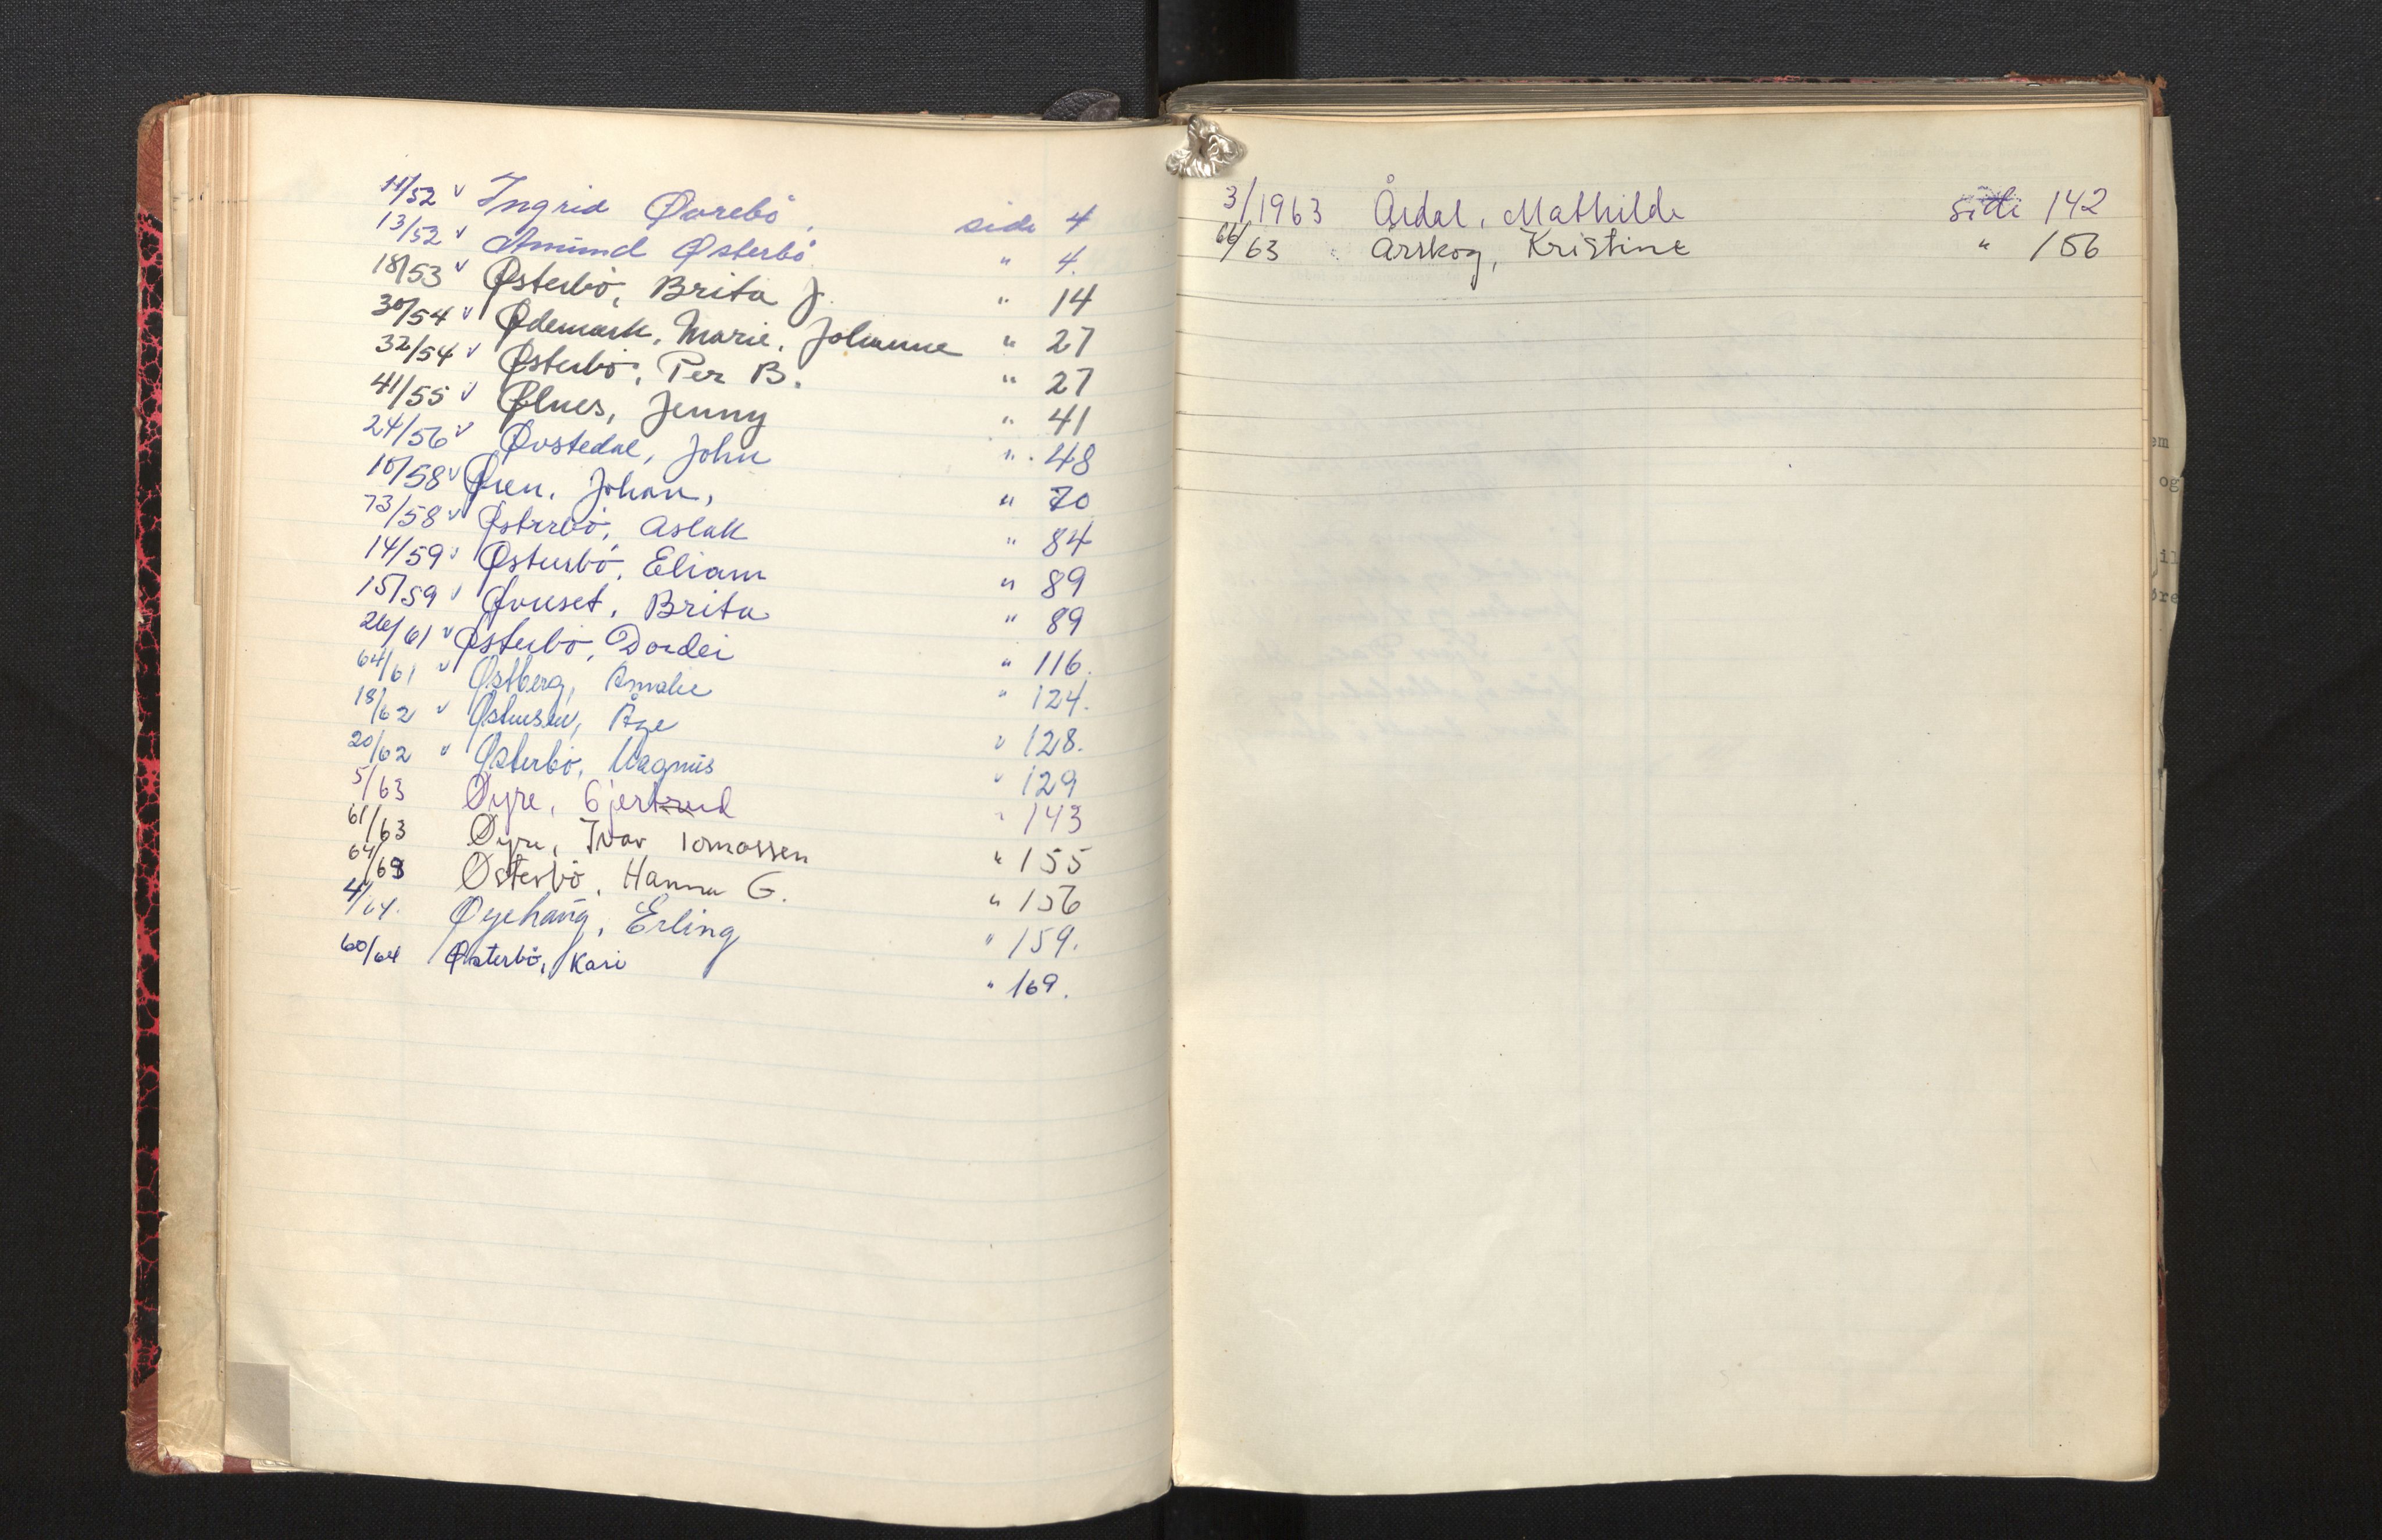 11/52 v Ingrid Øvrebö, side 4
13/52 v Amund Østerbö " 4.
18/53 v Østerbö, Brita J. " 14
30/54 v Ødemark, Marie, Johanne " 27
32/54 v Østerbö, Per B. " 27
41/55 v Ølnes, Jenny " 41
24/56 v Øvstedal, John " 48
10/58 v Øren, Johan, " 70
73/58 v Østerbö, Aslak " 84
14/59 v Østerbö, Eliam " 89
15/59 v Øvreset, Brita " 89
26/61 v Østerbö, Dordei " 116.
64/61 v Østberg, Amalie " 124.
18/62 v Åge " 128.
20/62 v Østerbö, Magnus " 129
5/63 Øyre, Gjertrud " 143
61/63 Øyre, Ivar Tomassen " 155
64/63 Østerbö, Hanna G. " 156
4/64. Øyehaug, Erling " 159.
60/64 Østerbö, Kari " 169.
3/1963 Årdal, Mathilde side 142
66/63 Årskog, Kristine " 156
em
og
il
øre